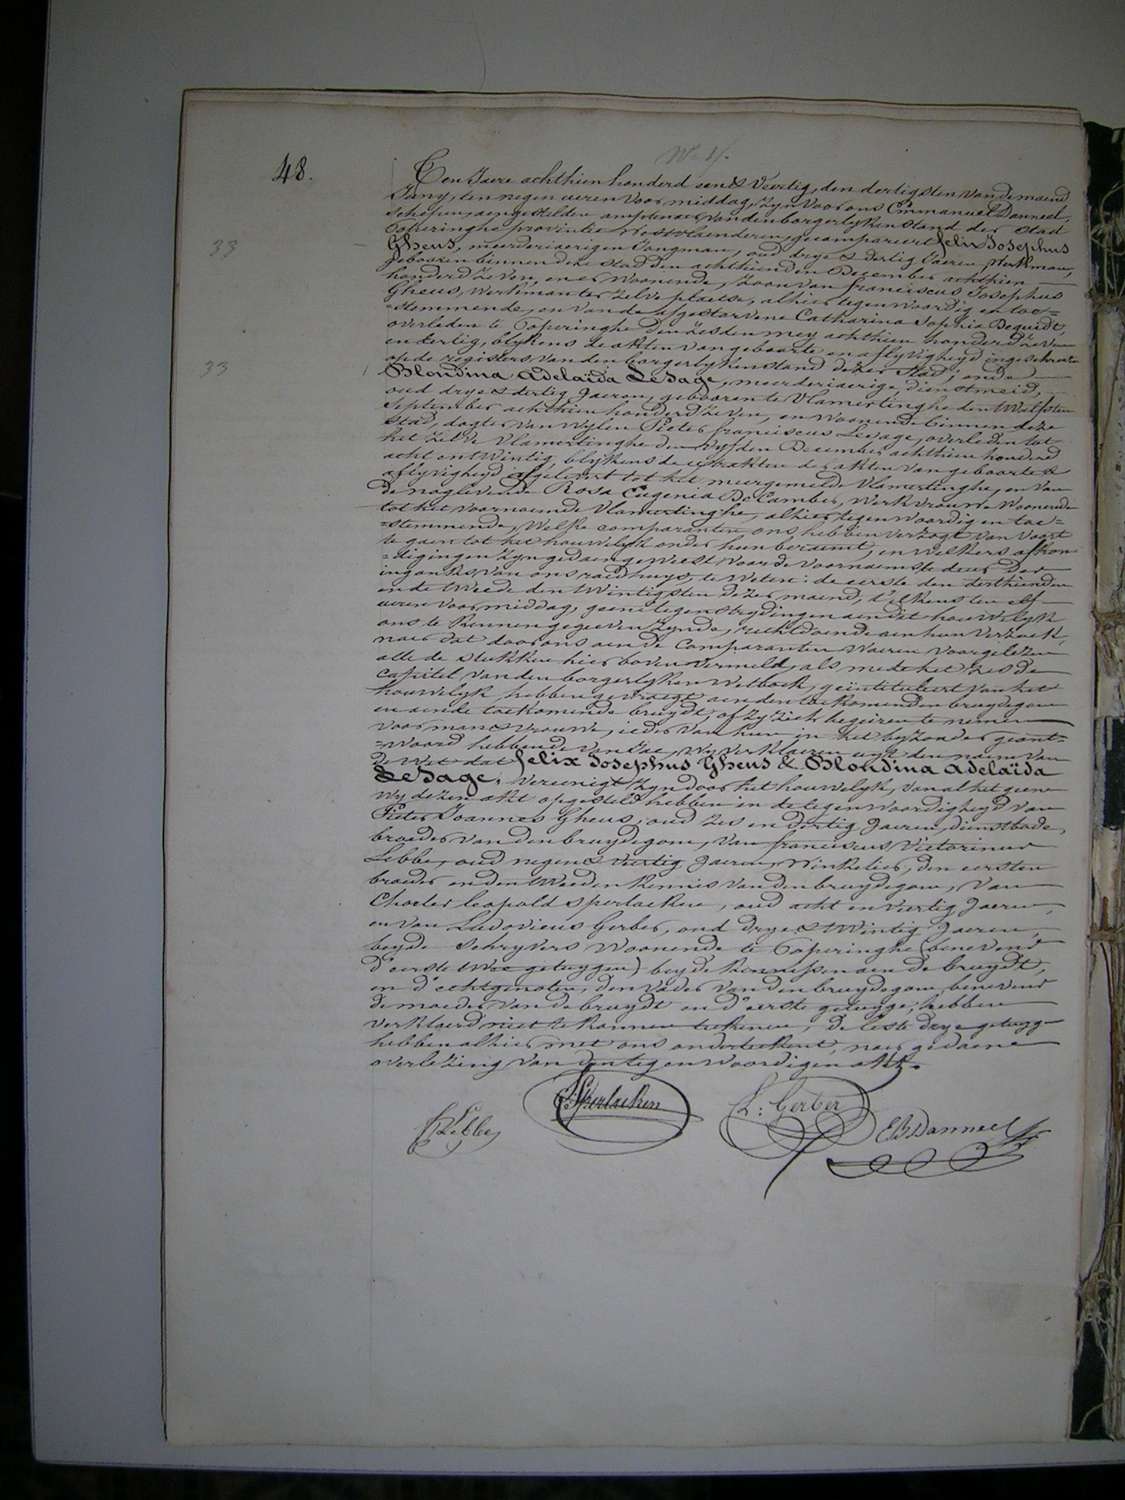 48.
Ten Jaere achthien honderd een & Veertig, den dertigsten van de maend
Juny, ten negen ueren voor middag, zyn voor ons Emmanuel Danneel,
Schepen, aengestelden amptenaer van den borgerlyken stand der Stad
Poperinghe, provintie Westvlaenderen, gecompareert Felix Josephus
33
Gheus, meerderjaerigen Jongman, oud drye & dertig Jaeren, Werkman,
gebooren binnen deze Stad den achthienden December achthien
honderd zeven, en er Woonende, Zoon van Franciscus Josephus
Gheus, Werkman ter zelve plaetse, alhier tegenwoordig en toe=
=stemmende, en van de afgestorvene Catharina Sophia Dequidt,
overleden te Poperinghe den zesden mey achthien honderd zeven
en dertig, blykens de akten van geboorte en aflyvigheyd ingeschreven
op de registers van den borgerlyken stand dezer Stad; ende
33
Blondina Adelaïda Lesage, meerderjaerige, dienstmeid,
oud drye & dertig Jaeren, gebooren te Vlamertinghe den Twelfsten
September achthien honderd zeven, en Woonende binnen deze
Stad, dogter van Wylen Pieter Franciscus Lesage, overleden tot
het zelve Vlamertinghe den vyfden December achthien honderd
acht en Twintig, blykens de extrakten der akten van geboorte &
aflyvigheyd afgelevert tot het meergemelde Vlamertinghe, en van
de naglevende Rosa Eugenia De Camber, Werkvrouwe Woonende
tot het voornoemde Vlamertinghe, alhier tegenwoordig en toe=
=stemmende, Welke comparanten ons hebben verzogt van voort
te gaen tot het houwelyk onder hun beraemt, en welkers afkon=
=digingen zyn gedaen geweest voor de voornaemste deur der
ingank van ons raedhuys, te Weten: de eerste den derthienden
en de tweede den twintigsten dezer maend, t'elkens ten elf
ueren voor middag, geene tegenstrydingen aen dit houwelyk
ons te kennen gegeven zynde, rechtdoende aen hun verzoek,
naer dat door ons aen de comparanten waeren voorgelezen
alle de stukken hier boven vermeld, als mede het zesde
capitel van den borgerlyken Wetboek, geïntituleert van het
houwelyk, hebben gevraegt aen den toekomenden bruydegom
en aende toekomende bruydt, of zy zich begeiren te nemen
voor man & vrouwe, ieder van hun in het byzonder geant=
=woord hebbende van Jae, Wy verklaeren uyt den naem van
de Wet dat Felix Josephus Gheus & Blondina Adelaïda
Lesage, vereenigt zyn door het houwelyk, van al het geene
Wy dezen akt opgesteld hebben in de tegenwoordigheyd van
Pieter Joannes Gheus, oud zes en dertig Jaeren, dienstbode,
broeder van den bruydegom, van Franciscus Victorinus
Lebbe, oud negen & veertig Jaeren, Winkelier, den eersten
broeder en den tweeden kennis van den bruydegom, van
Charles Leopold Sperlaeken, oud acht en veertig Jaeren,
en van Ludovicus Gerber, oud drye & twintig Jaeren,
beyde Schryvers Woonende te Poperinghe (benevens
d'eerste twee getuygen) beyde kennissen aen de bruydt,
en d'echtgenoten, den vader van den bruydegom, benevens
de moeder van de bruydt en d'eerste getuyge, hebben
verklaerd niet te konnen teekenen, de leste drye getuyge
hebben alhier met ons onderteekent, naer gedaene
overlezing van den tegenwoordigen akt.
Lebbe
Sperlaeken
L: Gerber
E. B. Danneel